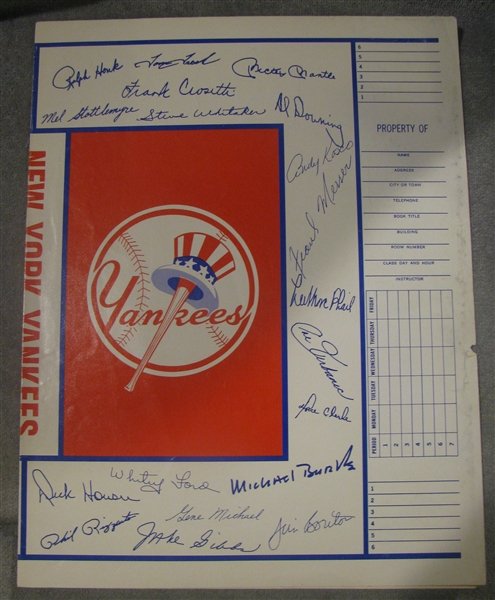 Ralph Houk Tom Tresh Mickey Mantle
Frank Crosetti
Mel Stottlemyre Steve Whitaker Al Downing
Andy Kosco
Thad Tillotson
Lee MacPhail
Joe Verbanic
Horace Clarke
NEW YORK YANKEES
Yankees
Dick Howser Whitey Ford Michael Burke
Gene Michael
Phil Rizzuto Jake Gibbs Jim Bouton
6
5
4
3
2
1
PROPERTY OF
NAME
ADDRESS
CITY OR TOWN
TELEPHONE
BOOK TITLE
BUILDING
ROOM NUMBER
CLASS DAY AND HOUR
INSTRUCTOR
FRIDAY
THURSDAY
WEDNESDAY
TUESDAY
MONDAY
PERIOD 1 2 3 4 5 6 7
1
2
3
4
5
6